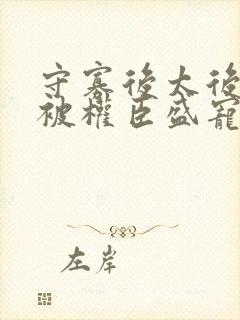 守寡後太後
被權臣盛寵
左岸